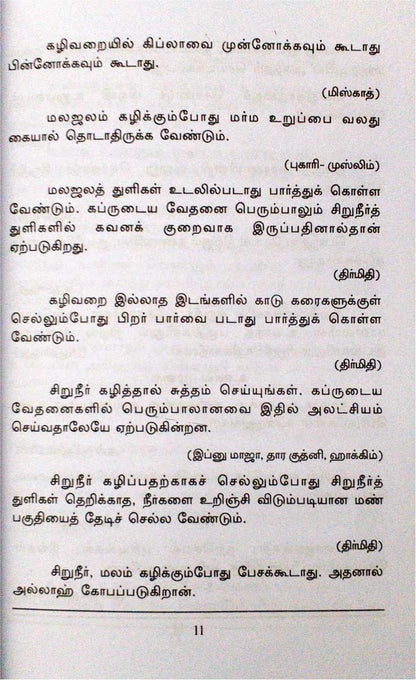 கழிவறையில் கிப்லாவை முன்னோக்கவும் கூடாது
பின்னோக்கவும் கூடாது.
(மிஸ்காத்)
மலஜலம் கழிக்கும்போது மர்ம உறுப்பை வலது
கையால் தொடாதிருக்க வேண்டும்.
(புகாரி- முஸ்லிம்)
மலஜலத் துளிகள் உடலில்படாது பார்த்துக் கொள்ள
வேண்டும். கப்ருடைய வேதனை பெரும்பாலும் சிறுநீர்த்
துளிகளில் கவனக் குறைவாக இருப்பதினால்தான்
ஏற்படுகிறது.
(திர்மிதி)
கழிவறை இல்லாத இடங்களில் காடு கரைகளுக்குள்
செல்லும்போது பிறர் பார்வை படாது பார்த்துக் கொள்ள
வேண்டும்.
(திர்மிதி)
சிறுநீர் கழித்தால் சுத்தம் செய்யுங்கள். கப்ருடைய
வேதனைகளில் பெரும்பாலானவை இதில் அலட்சியம்
செய்வதாலேயே ஏற்படுகின்றன.
(இப்னு மாஜா, தார குத்னி, ஹாக்கிம்)
சிறுநீர் கழிப்பதற்காகச் செல்லும்போது சிறுநீர்த்
துளிகள் தெறிக்காத, நீர்களை உறிஞ்சி விடும்படியான மண்
பகுதியைத் தேடிச் செல்ல வேண்டும்.
(திர்மிதி)
சிறுநீர், மலம் கழிக்கும்போது பேசக்கூடாது. அதனால்
அல்லாஹ் கோபப்படுகிறான்.
11